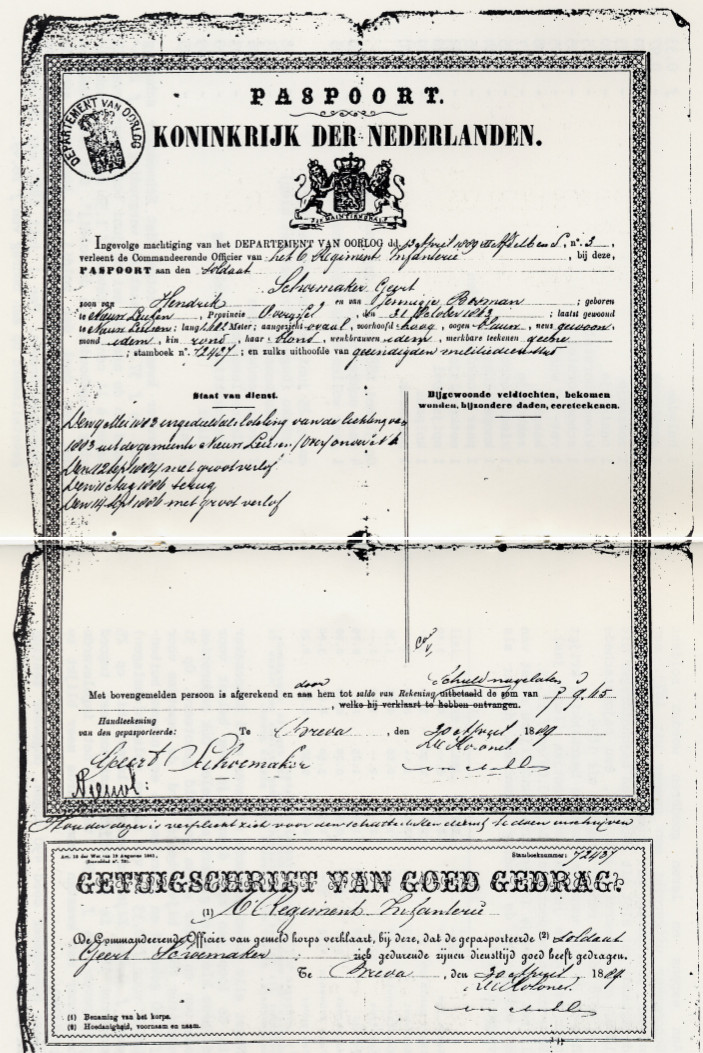 PASPOORT.
DEPARTEMENT VAN OORLOG
KONINKRIJK DER NEDERLANDEN.
JE MAINTIENDRAI
Ingevolge machtiging van het DEPARTEMENT VAN OORLOG dd. 13 April 1889 , nº. 3 ,
verleent de Commandeerende Officier van het 6 Regiment Infanterie , bij deze,
PASPOORT aan den Soldaat
Schoemaker Geert
zoon van Hendrik en van Jennigje Bosman ; geboren
te Nieuw Leusen , Provincie Overijssel , den 31 October 1863 ; laatst gewoond
te Nieuw Leusen ; lang 1.682 Meter; aangezicht ovaal , voorhoofd hoog , oogen blauw , neus gewoon ,
mond idem , kin rond , haar blond , wenkbrauwen idem , merkbare teekenen geene
; stamboek nº. 72437 ; en zulks uithoofde van geëindigden militiedienst
Staat van dienst.
Bijgewoonde veldtochten, bekomen
wonden, bijzondere daden, eereteekenen.
Den 9 Mei 1883 ingedeeld als loteling van de lichting van
1883 uit de gemeente Nieuw Leusen (Over) onder Nº
Den 12 Sept 1884 met groot verlof
Den 11 Aug 1886 terug
Den 14 Sept 1886 met groot verlof
door Schuld nagelaten
Met bovengemelden persoon is afgerekend en aan hem tot saldo van Rekening uitbetaald de som van ƒ 9.65
, welke hij verklaart te hebben ontvangen.
Handteekening
van den gepasporteerde:
Te Breda , den 20 April 1889
De Kolonel
Geert Schoemaker
Houder dezes is verplicht zich voor den schutterlijken dienst te doen inschrijven
Stamboeknummer: 72437
GETUIGSCHRIFT VAN GOED GEDRAG.
(1) 6 Regiment Infanterie
De Commandeerende Officier van gemeld korps verklaart, bij deze, dat de gepasporteerde (2) Soldaat
Geert Schoemaker zich gedurende zijnen diensttijd goed heeft gedragen.
Te Breda , den 20 April 1889
De Kolonel
(1) Benaming van het korps.
(2) Hoedanigheid, voornaam en naam.